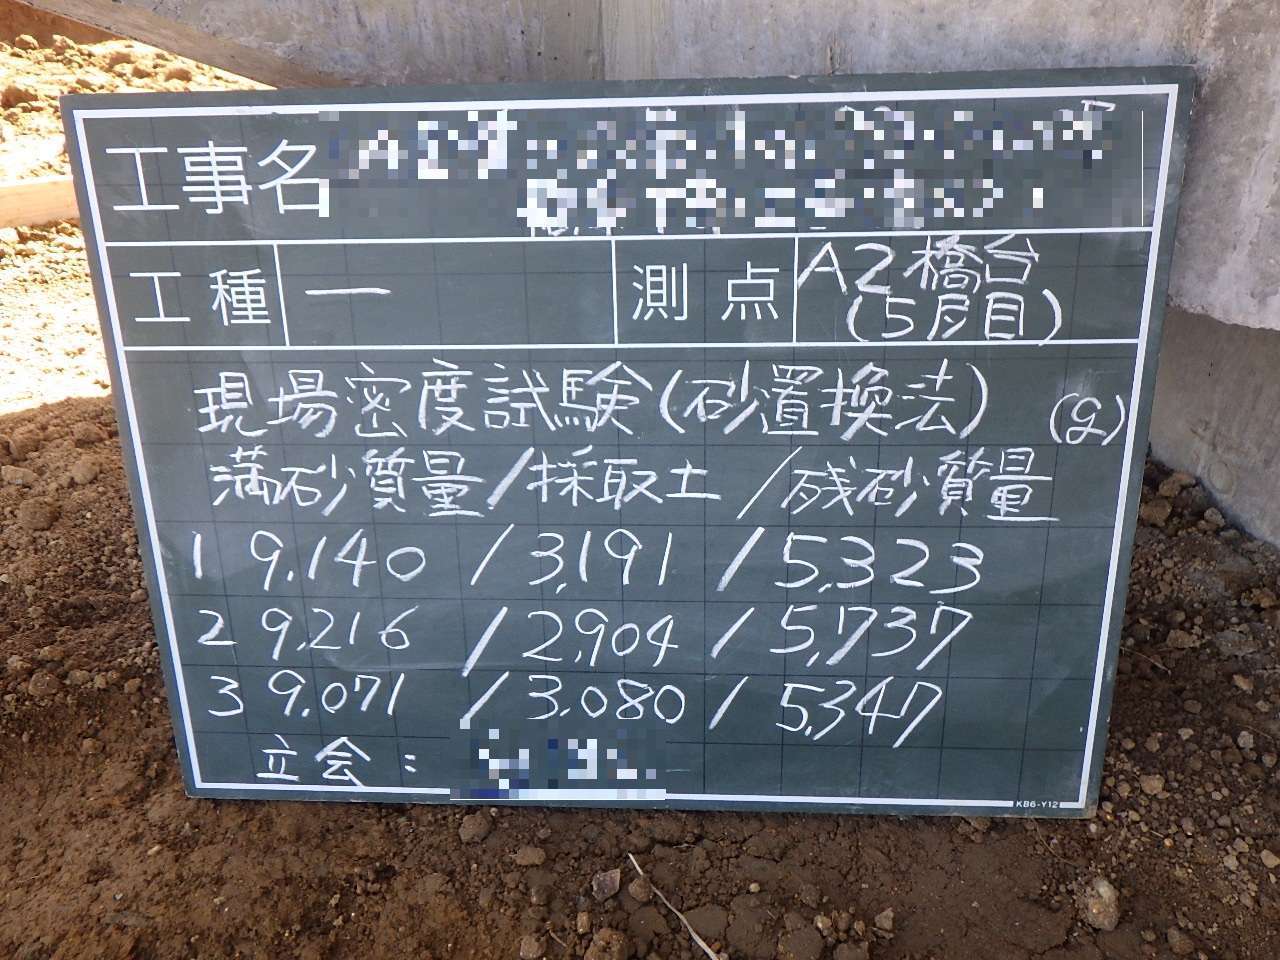 工事名
工種 — 測点 A2橋台
(5層目)
現場密度試験(砂置換法) (g)
満砂質量/採取土/残砂質量
1 9,140 / 3,191 / 5,323
2 9,216 / 2,904 / 5,737
3 9.071 / 3.080 / 5,347
立会:
KB6-Y12